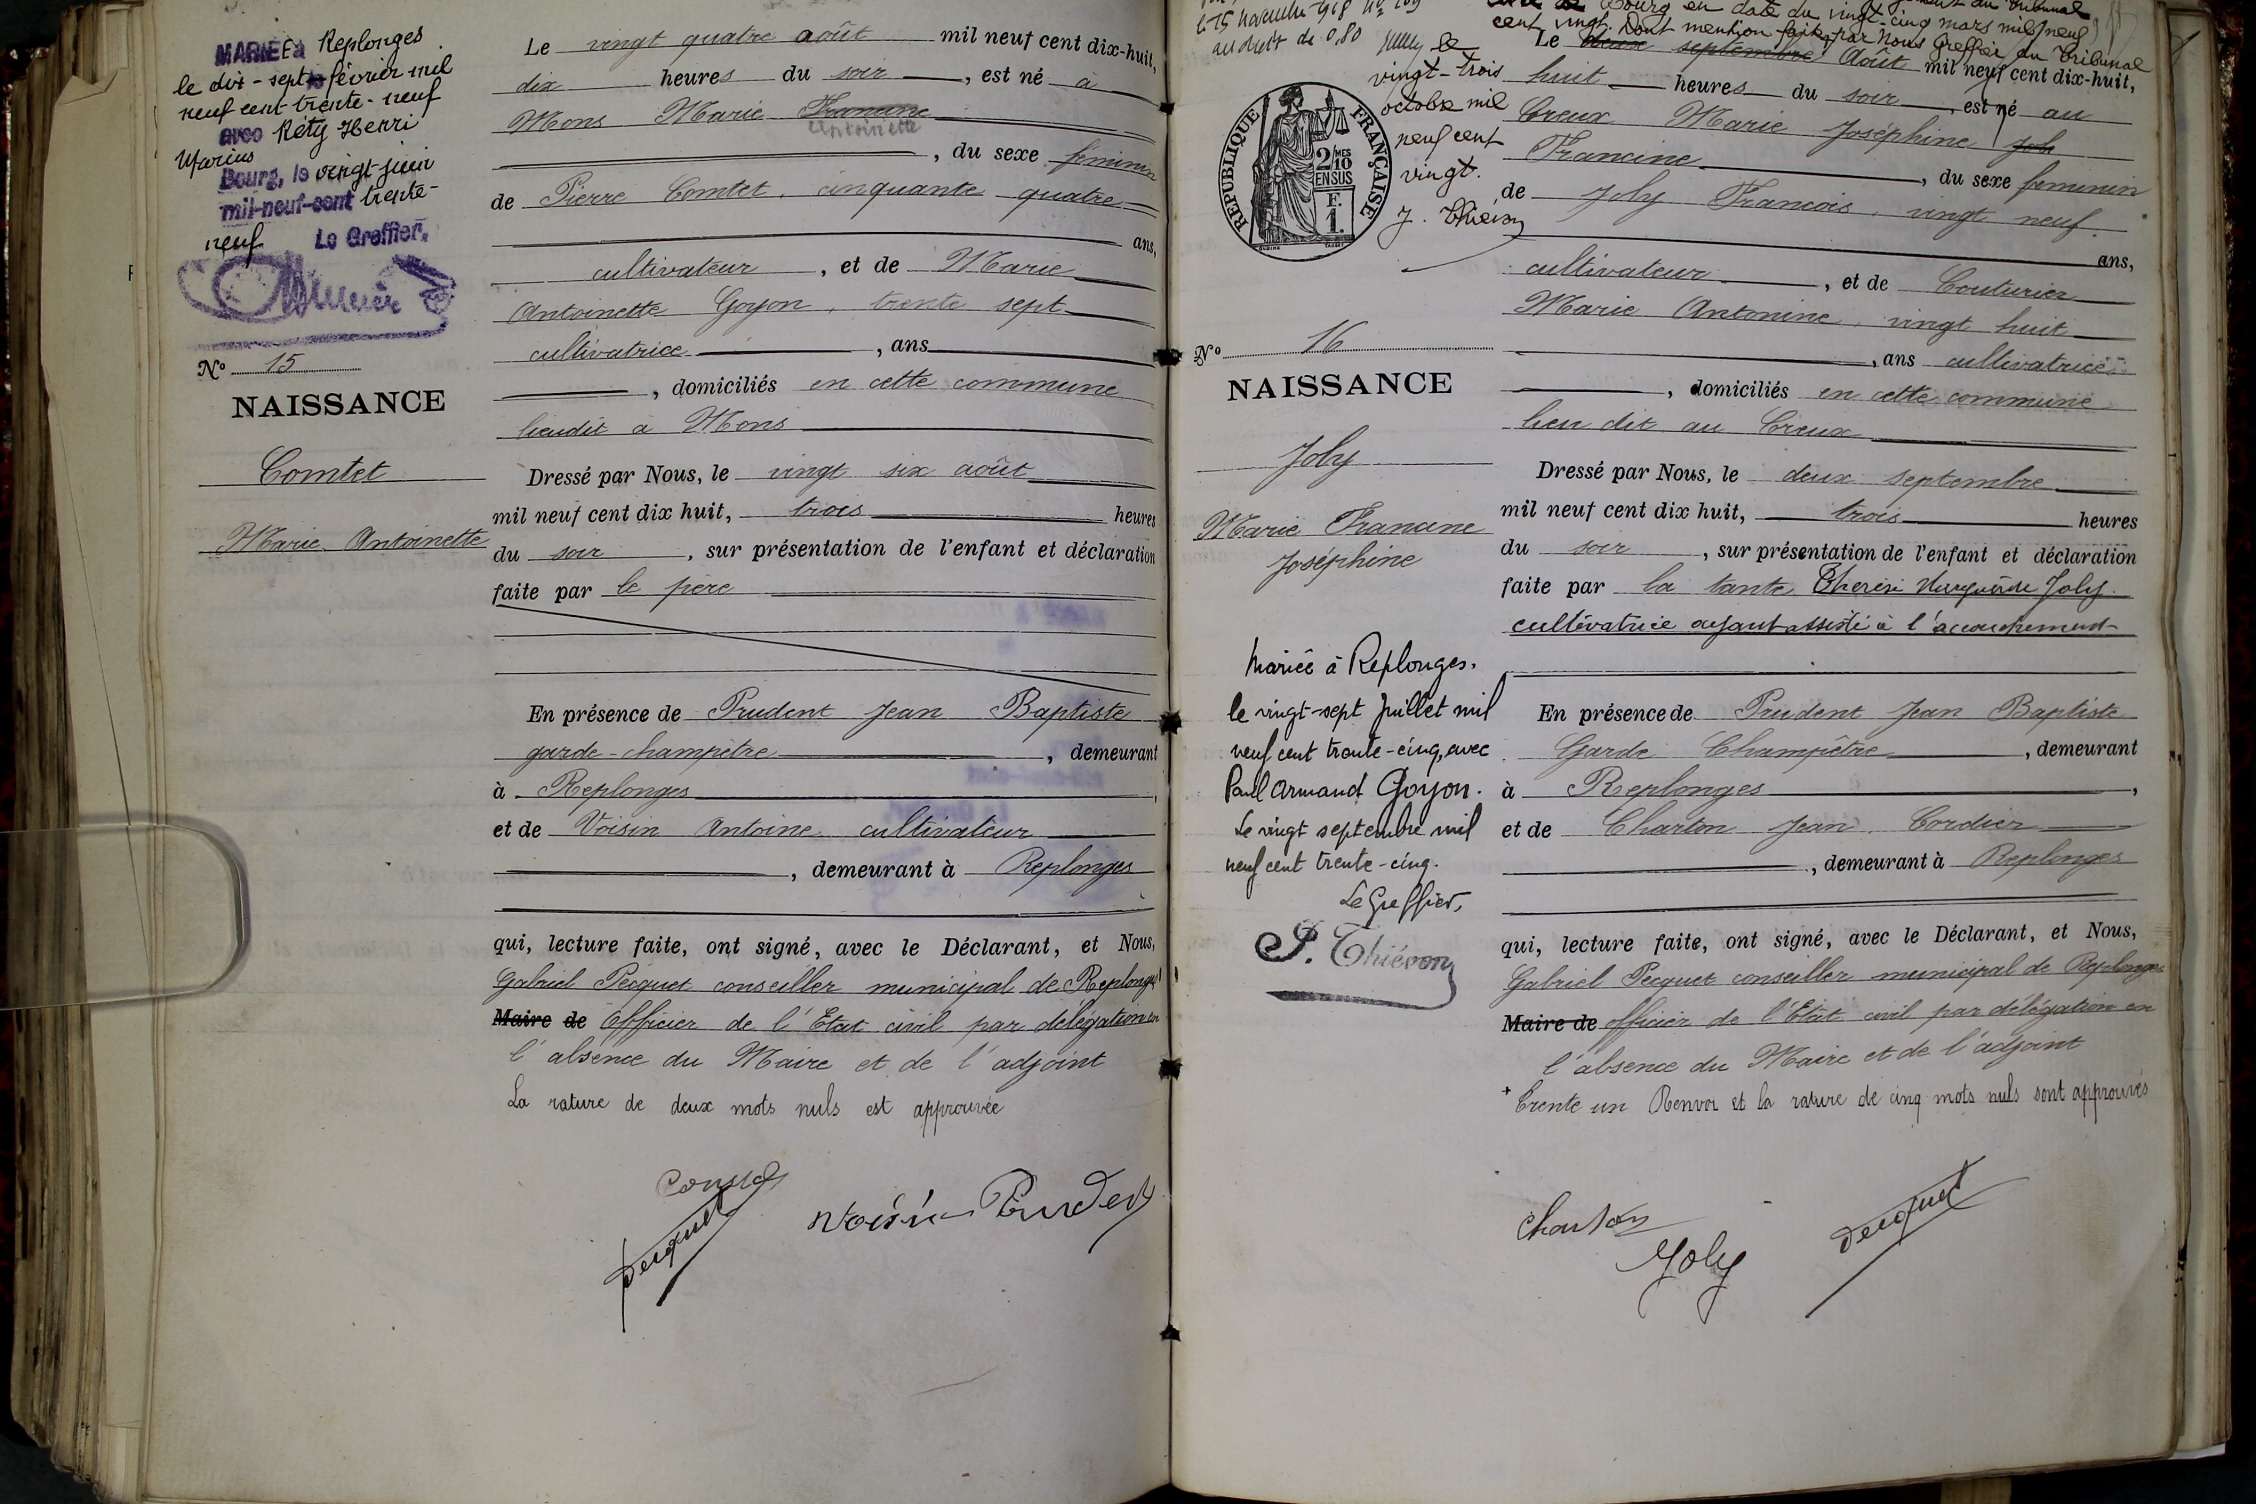 MARIÉE à Replonges
le dix-sept février mil
neuf cent trente-neuf
avec Réty Henri
Marius
Bourg, le vingt juin
mil-neuf-cent trente-
neuf Le Greffier,
No 15
NAISSANCE
Comtet
Marie Antoinette
Le vingt quatre août mil neuf cent dix-huit,
dix heures du soir, est né à
Mons Marie Francine
Antoinette
, du sexe féminin
de Pierre Comtet, cinquante quatre
ans,
cultivateur, et de Marie
Antoinette Goyon, trente sept
cultivatrice, ans
, domiciliés en cette commune
lieudit à Mons
Dressé par Nous, le vingt six août
mil neuf cent dix huit, trois heures
du soir, sur présentation de l'enfant et déclaration
faite par le père
En présence de Prudent Jean Baptiste
garde-champêtre, demeurant
à Replonges
et de Voisin Antoine cultivateur
, demeurant à Replonges
qui, lecture faite, ont signé, avec le Déclarant, et Nous,
Gabriel Pecquet conseiller municipal de Replonges
Maire de Officier de l'Etat civil par délégation en
l'absence du Maire et de l'adjoint
La rature de deux mots nuls est approuvée
Pecquet
Voisin Prudent
le 15 novembre 1918
au droit de 0,80
le
vingt-trois
octobre mil
neuf cent
vingt.
J. Thiévon
RÉPUBLIQUE FRANÇAISE
2/10MES
EN SUS
F.
1.
No 16
NAISSANCE
Joly
Marie Francine
Joséphine
Mariée à Replonges,
le vingt-sept Juillet mil
neuf cent trente-cinq, avec
Paul Armand Goyon.
Le vingt septembre mil
neuf cent trente-cinq.
Le Greffier,
P. Thiévon
Bourg en date du vingt-cinq mars mil neuf
cent vingt. Dont mention faite par Nous Greffier du Tribunal
Le deux septembre Août mil neuf cent dix-huit,
huit heures du soir, est né au
Creux Marie Joséphine Joh
Francine, du sexe féminin
de Joly François, vingt neuf
ans,
cultivateur, et de Couturier
Marie Antonine, vingt huit
, ans cultivatrice
, domiciliés en cette commune
lieu dit au Creux
Dressé par Nous, le deux septembre
mil neuf cent dix huit, trois heures
du soir, sur présentation de l'enfant et déclaration
faite par la tante Joly
cultivatrice ayant assisté à l'accouchement
En présence de Prudent Jean Baptiste
Garde Champêtre, demeurant
à Replonges,
et de Charton Jean Cordier
, demeurant à Replonges
qui, lecture faite, ont signé, avec le Déclarant, et Nous,
Gabriel Pecquet conseiller municipal de Replonges
Maire de officier de l'Etat civil par délégation en
l'absence du Maire et de l'adjoint
+ Trente un Renvoi et la rature de cinq mots nuls sont approuvés
Charton
Joly
Pecquet